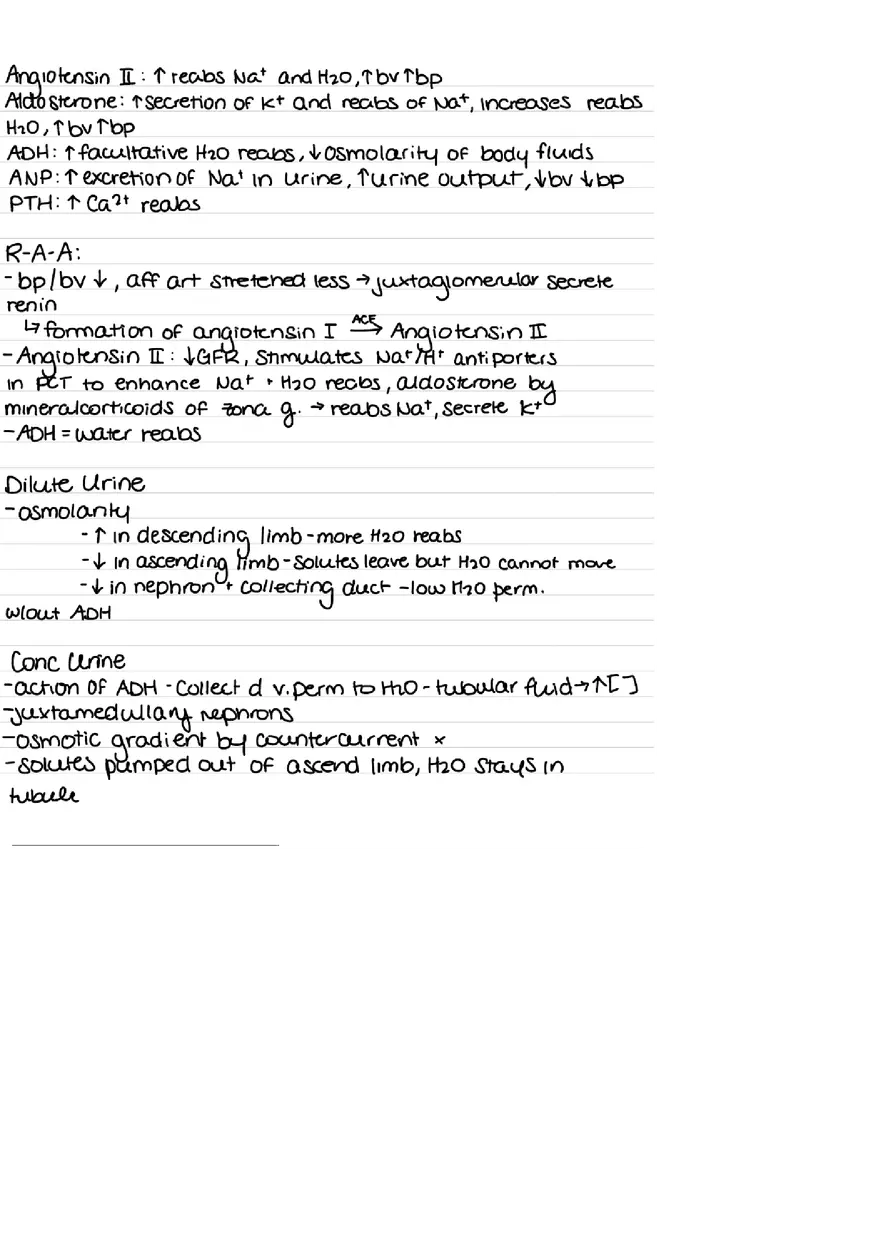 Angiotensin II: ↑ reabs Na⁺ and H₂O, ↑bv↑bp
Aldosterone: ↑secretion of K⁺ and reabs of Na⁺, increases reabs
H₂O, ↑bv↑bp
ADH: ↑facultative H₂O reabs, ↓osmolarity of body fluids
ANP: ↑ excretion of Na⁺ in urine, ↑urine output, ↓bv ↓bp
PTH: ↑ Ca²⁺ reabs
R-A-A:
-bp/bv ↓, aff art stretched less → juxtaglomerular secrete
renin
↳ formation of angiotensin I ACE→ Angiotensin II
-Angiotensin II: ↓GFR, stimulates Na⁺/H⁺ antiporters
in PCT to enhance Na⁺ + H₂O reabs, aldosterone by
mineralcorticoids of zona g. → reabs Na⁺, secrete K⁺
-ADH = water reabs
Dilute Urine
-osmolarity
-↑ in descending limb - more H₂O reabs
-↓ in ascending limb - solutes leave but H₂O cannot move
-↓ in nephron + collecting duct - low H₂O perm.
w/out ADH
Conc Urine
-action of ADH - collect d v. perm to H₂O - tubular fluid → ↑[ ]
-juxtamedullary nephrons
-osmotic gradient by countercurrent x
-solutes pumped out of ascend limb, H₂O stays in
tubule